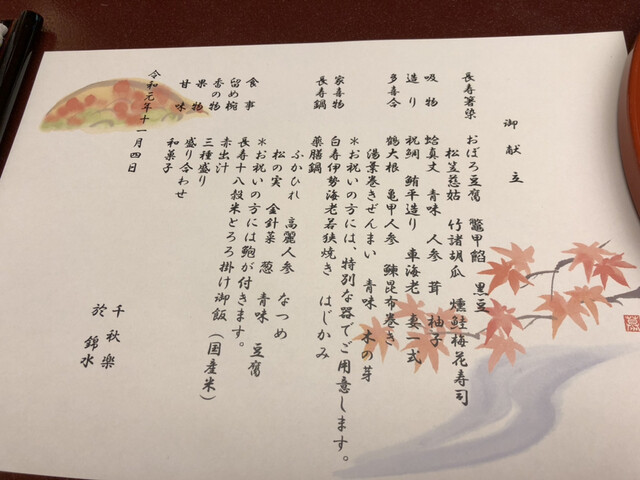 御献立
長寿箸染 おぼろ豆腐 鼈甲餡 黒豆
松笠慈姑 竹諸胡瓜 燻鮭梅花寿司
吸物 蛤真丈 青味 人参 茸 柚子
造り 祝鯛 鮪平造り 車海老 妻一式
多喜合 鶴大根 亀甲人参 鰊昆布巻き
湯葉巻きぜんまい 青味 木の芽
家喜物 *お祝いの方には、特別な器でご用意します。
白寿伊勢海老若狭焼き はじかみ
長寿鍋 薬膳鍋
ふかひれ 高麗人参 なつめ
松の実 金針菜 葱 青味 豆腐
*お祝いの方には鮑が付きます。
食事 長寿十八穀米とろろ掛け御飯(国産米)
留め椀 赤出汁
香の物 三種盛り
果物 盛り合わせ
甘味 和菓子
令和元年十一月四日
千秋楽
於 錦水